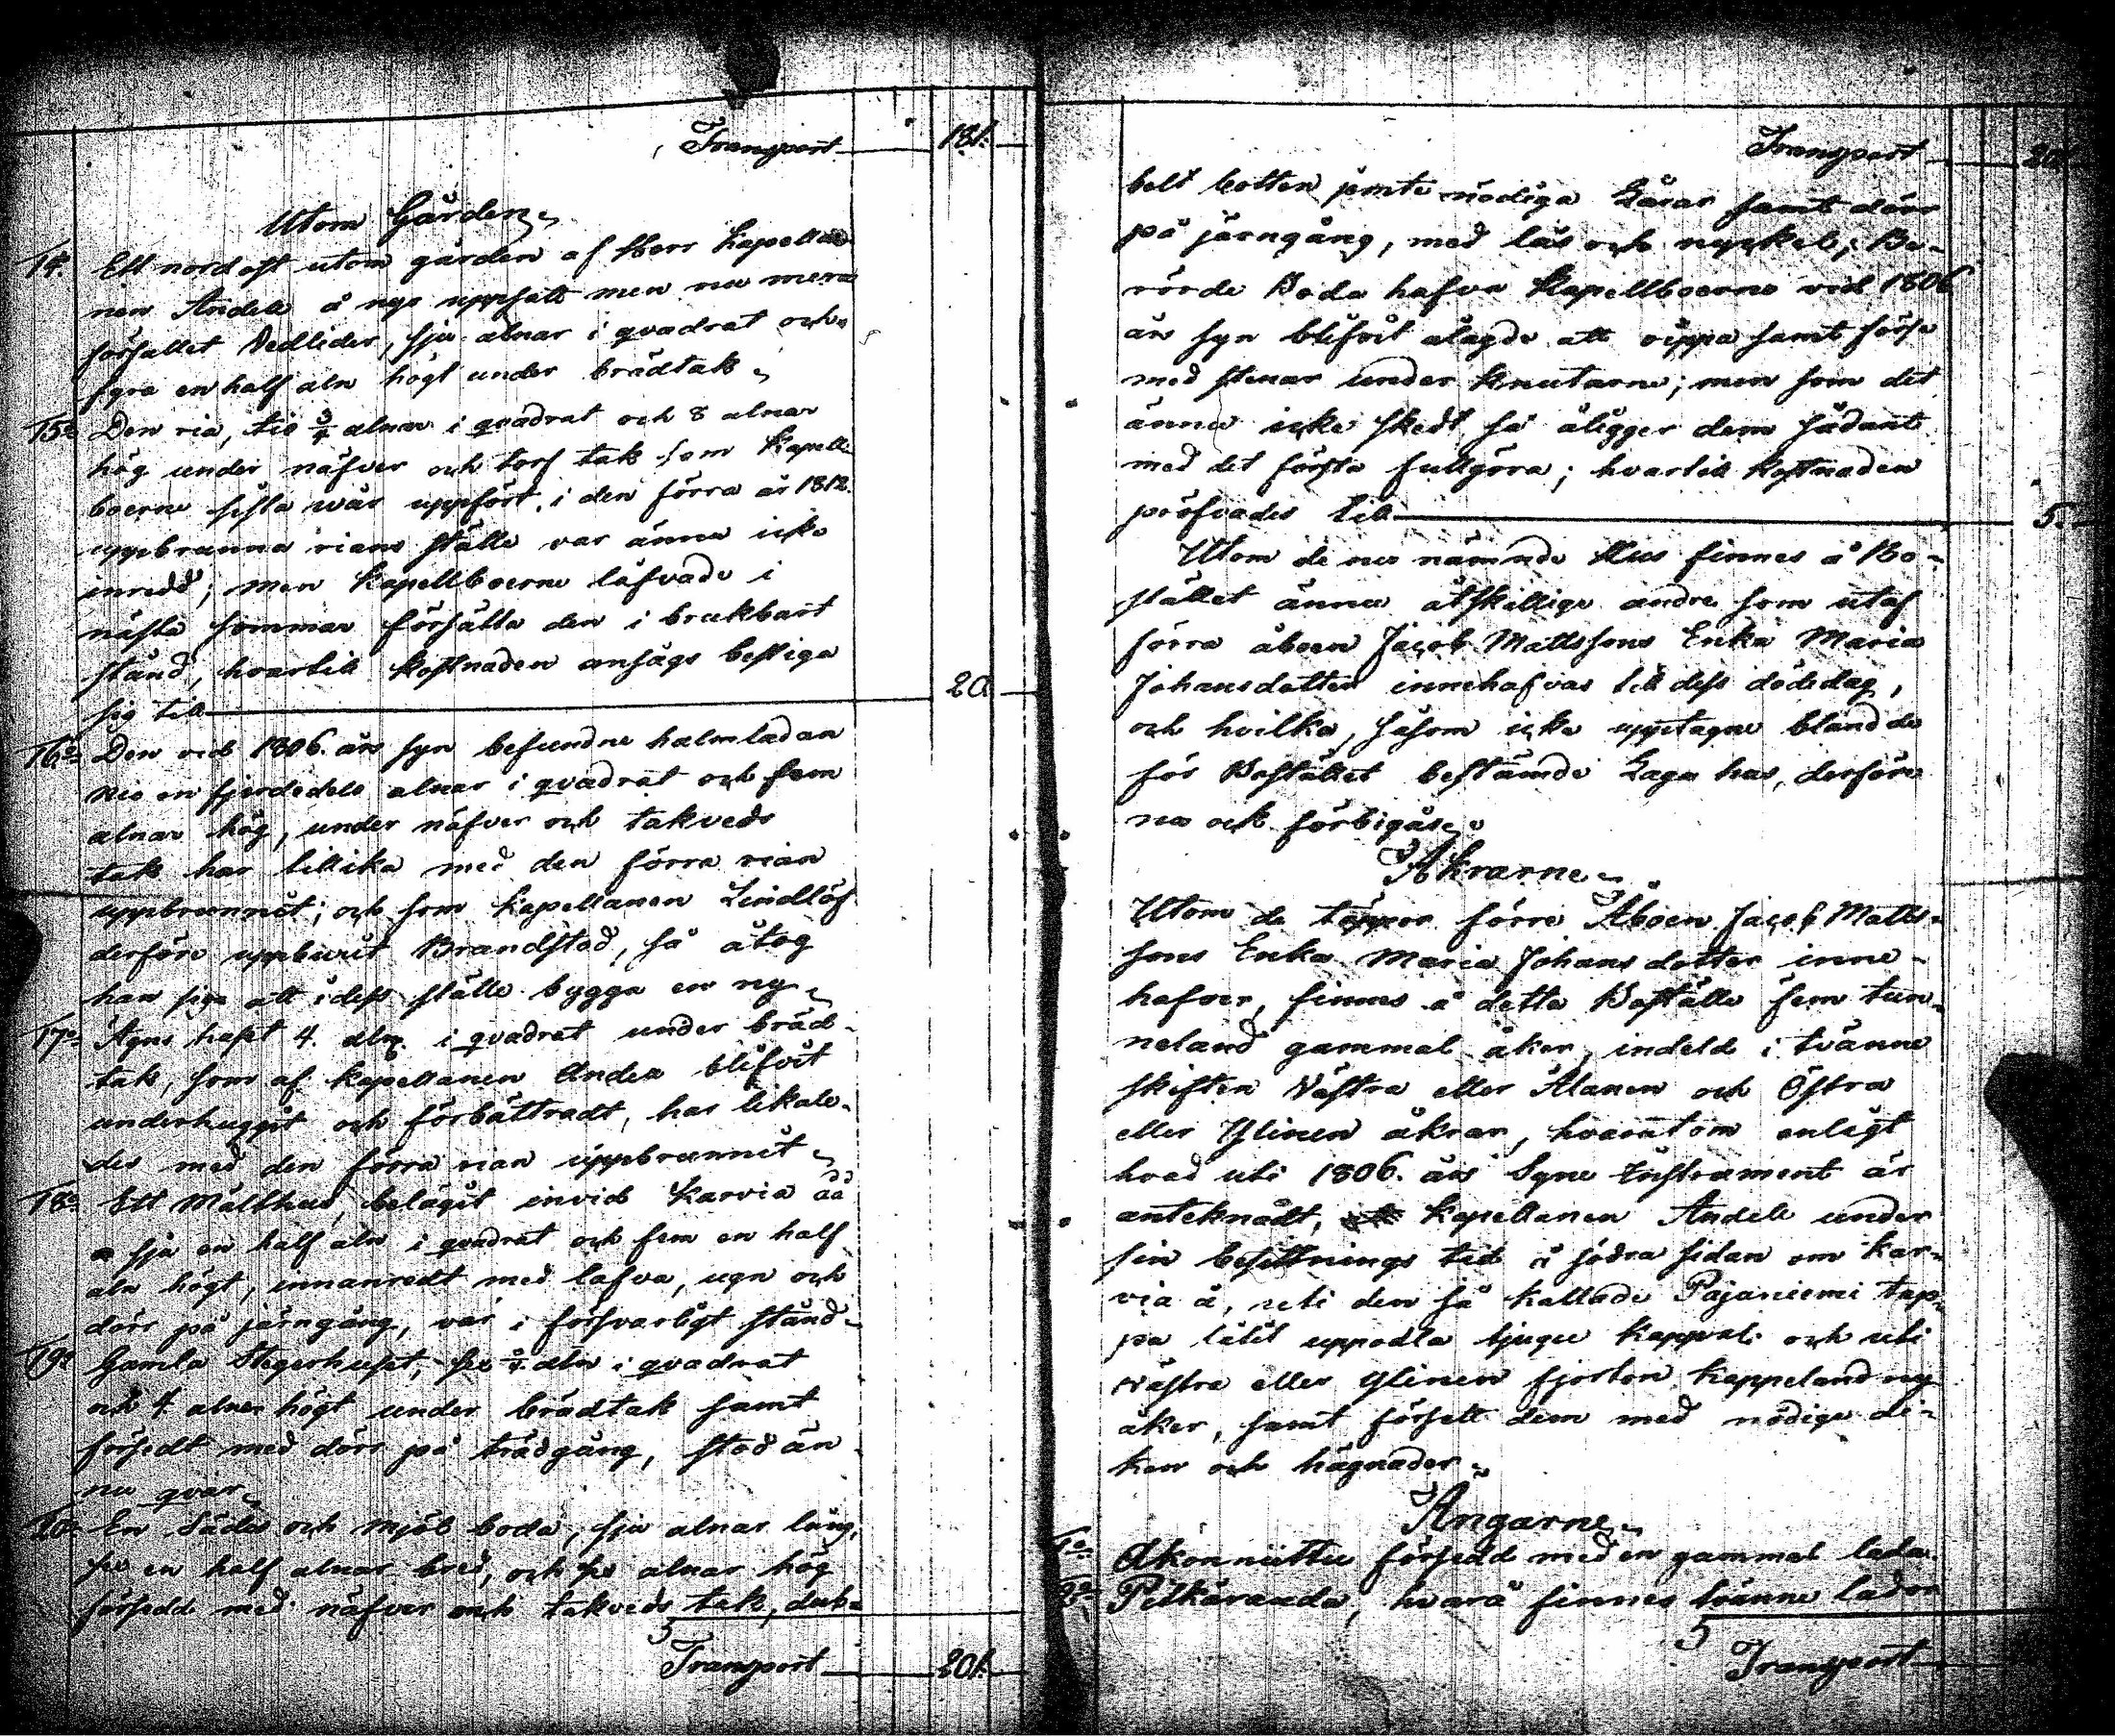 Transport 181.
Utom Gården
14o Ett nordost utom gården af Herr Kapella-
nen Andell å nyo uppsatt men nu mera
förfallet Vedlider, sju alnar i qvadrat och
fyra en half aln högt under brädtak
15o Den ria, tio 3/4 alnar i qvadrat och 8 alnar
hög under näfver och torf tak som Kapell-
boerne sista wår uppfört, i den förra år 1812.
uppbrunna rians ställe var ännu icke
inredd; men Kapellboerne låfvade i
nästa sommar försätta den i brukbart
stånd, hvartill kostnaden ansågs bestiga
sig till 20
16o Den vid 1806. års syn befundne halmladan
nio en fjerdedels alnar i qvadrat och fem
alnar hög, under näfver och takveds
tak har tillika med den förra rian
uppbrunnit; och som Kapellanen Lindlöf
derföre uppburit Brandstod, så åtog
han sig att i dess ställe bygga en ny
17o Agns huset 4. aln. i qvadrat under bräd-
tak, som af Kapellanen Andell blifvit
underhuggit och förbättradt, har likale-
des med den förra rian uppbrunnit
18o Ett Målthus, belägit invid Karvia åå
sju en half aln i qvadrat och fem en half
aln högt, innanredt med lafva, ugn och
dörr på järngång, var i försvarligt stånd
19o Gamla Stegerhuset, sex 3/4 aln i qvadrat
och 4 alnar högt under brädtak samt
försedt med dörr på trädgång, stod än-
nu qvar
20o En Säda och mjöl boda, sju alnar lång,
sex en half alnar bred, och sex alnar hög
försedd med näfver och takveds tak, dub-
5
Transport 201.
Transport 201
belt botten jemte nödiga Låsar samt dörr
på järngång, med lås och nyckel; Be-
rörde Boda hafva Kapellboerne vid 1806
års syn blifvit ålagde att öppa samt förse
med stenar under Knutarne; men som det
ännu icke skedt så åligger dem sådant
med det första fullgöra; hvartill Kostnaden
pröfvades till 5.
Utom de nu nämnde Hus finnes å Bo-
stället ännu åtskillige andre som utaf
förra åboen Jacob Mattssons Enka Maria
Johansdotter innehafvas till dess dödedag,
och hvilka, såsom icke upptagne bland de
för Bostället bestämde Laga hus, derföre
nu ock förbigås
Åkrarne
Utom de täppor förre Åboen Jacob Matts-
sons Enka Maria Johans dotter inne-
hafver, finnes å detta Boställe fem tun-
neland gammal åker, indeld i tvänne
skiften Västra eller Alanen och Östra
eller Ylinen åkrar, hvarutom enligt
hvad uti 1806. års Syne Instrument är
anteknadt, Kapellanen Andell under
sin besittnings tid å södra sidan om Kar-
via å, uti den så kallade Pajaniemi täp-
pa låtit uppodla tjugu Kappal. och uti
Västra eller Ylinen fjorton Kappeland ny
åker, samt försett dem med nödige di-
ken och hägnader
Ängarne
1o Akonniittu försedd med en gammal lada
2o Pitkäranda, hvarå finnes tvänne lador
5
Transport